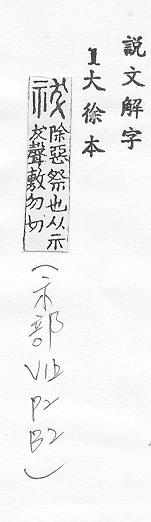 説文解字
1大徐本
祓 除惡祭也从示
犮聲敷勿切
(示部 V1上 P2 B2)